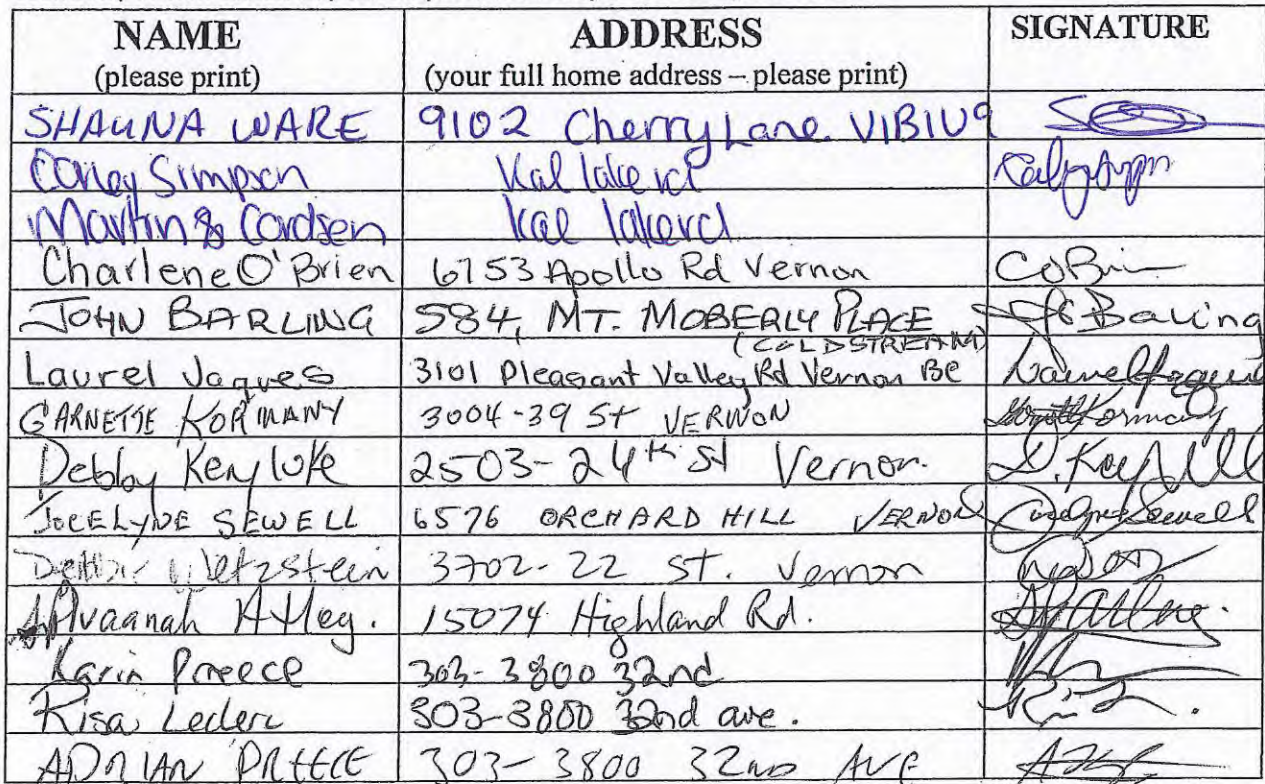 NAME ADDRESS SIGNATURE
(please print) (your full home address – please print)
SHAUNA WARE 9102 Cherry Lane V1B1U9
Corley Simpson Kal lake rd
Marting Cordsen Kal lakerd
Charlene O'Brien 6753 Apollo Rd Vernon COBrien
JOHN BARLING 584, MT. MOBERLY PLACE
(COLDSTREAM)
Laurel Jaques 3101 Pleasant Valley Rd Vernon BC Laurel Jaques
GARNETTE KORMANY 3004-39 St VERNON Kormany
Debby 2503-24th St Vernon.
JOCELYNE SEWELL 6576 ORCHARD HILL VERNON Jocelyne Sewell
Debbie Wetzstein 3702-22 ST. Vernon
15074 Highland Rd.
Karin Preece 303-3800 32nd
Risa Leclerc 303-3800 32nd ave.
ADRIAN PREECE 303-3800 32ND AVE